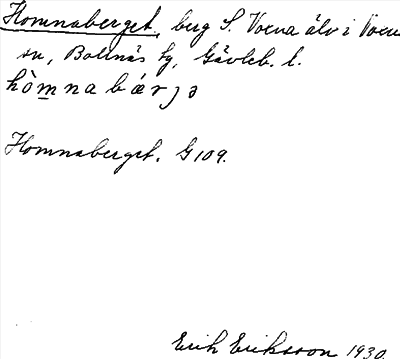 Homnaberget, berg S. Voxna älv i Voxna
sn, Bollnäs tg, Gävleb. l.
hòmnabærjə
Homnaberget. G 109.
Erik Eriksson 1930.